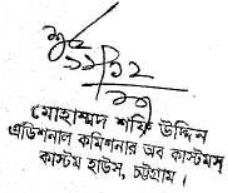 মোহাম্মদ শফি উদ্দিন
এডিশনাল কমিশনার অব কাস্টমস্
কাস্টম হাউস, চট্টগ্রাম।